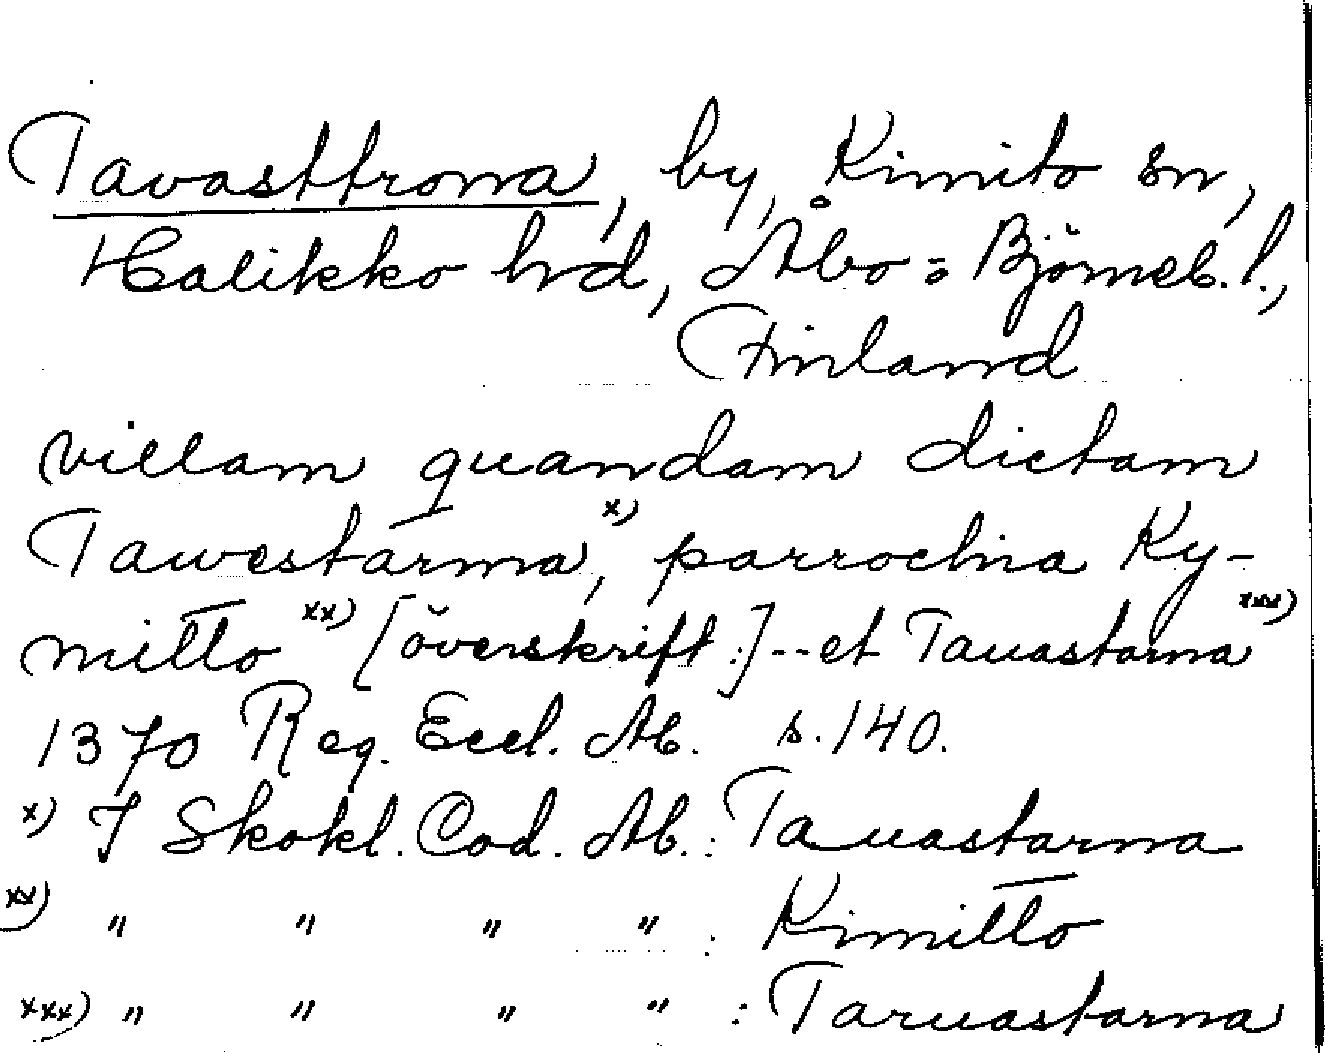 Tavasttrona, by, Kimito sn,
Halikko hrd, Åbo = Björneb. l.,
Finland
villam quandam dictam
Tawestarma x), parrochia Ky-
mitto xx) [överskrift:] -- et Tauastarna xxx)
1370 Reg. Eccl. Ab. s. 140.
x) I Skokl. Cod. Ab. : Tauastarna
xx) " " " " : Kimitto
xxx) " " " " : Taruastarna